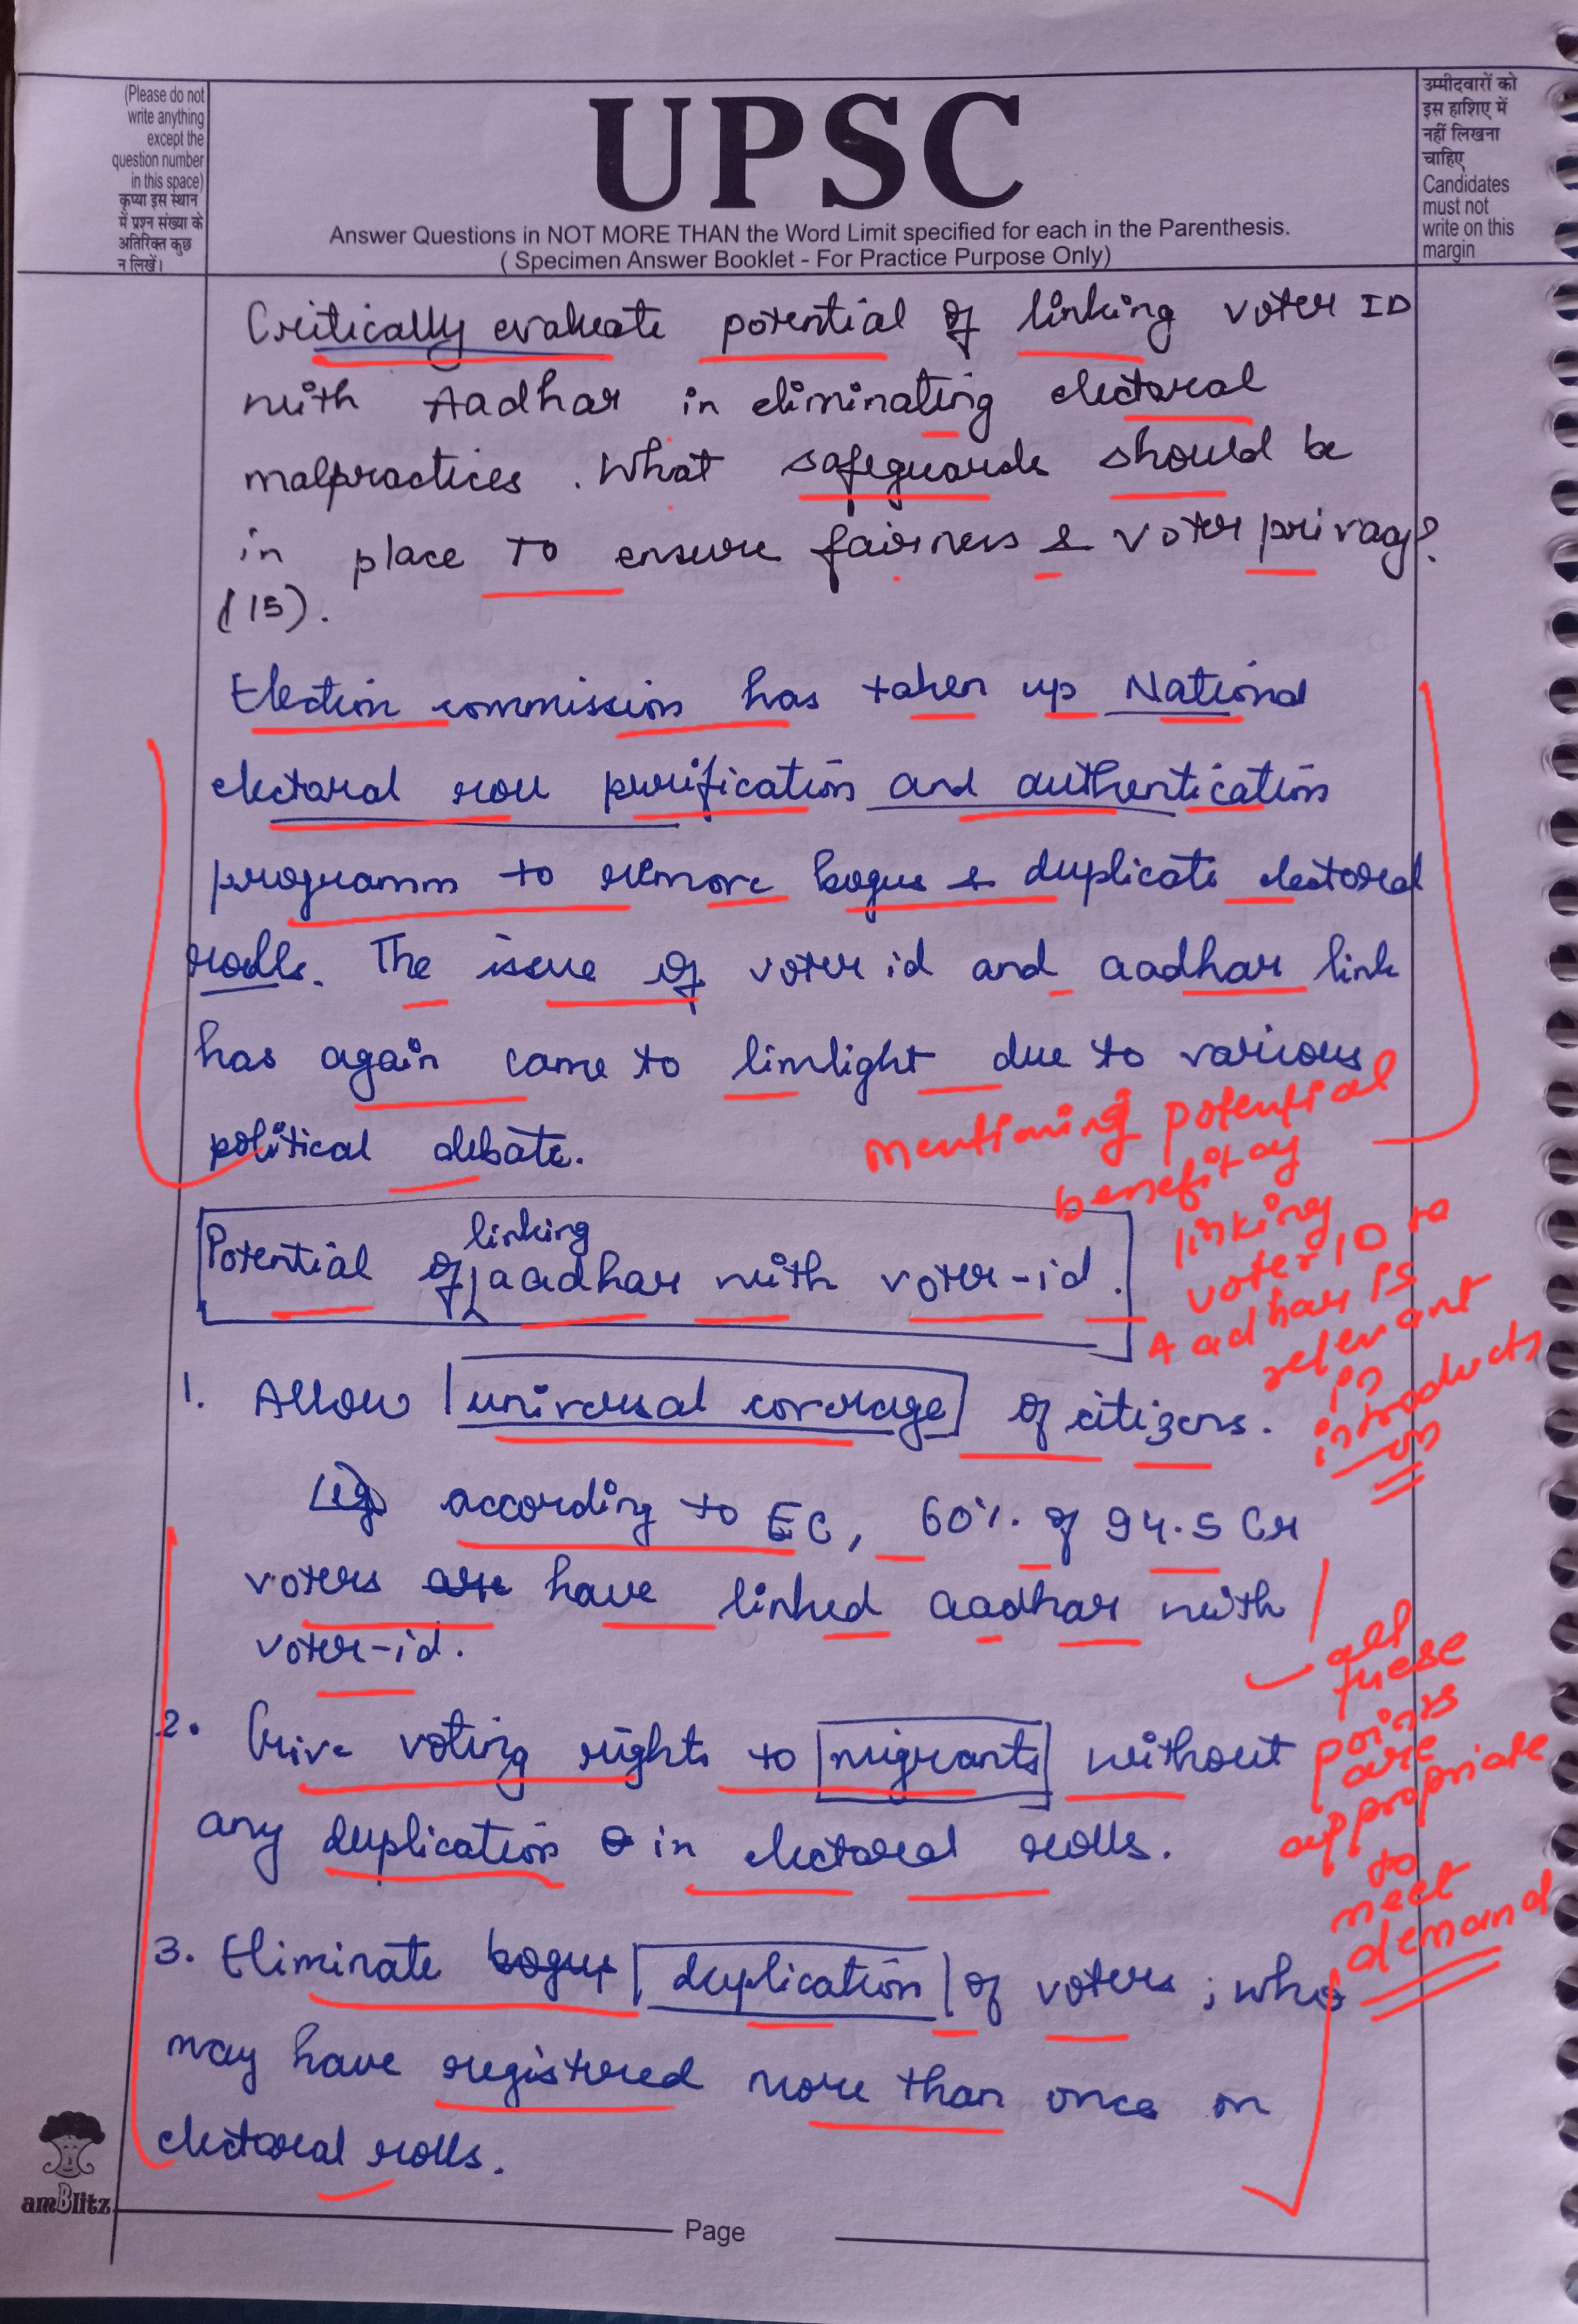 (Please do not
write anything
except the
question number
in this space)
कृप्या इस स्थान
में प्रश्न संख्या के
अतिरिक्त कुछ
न लिखें।
UPSC
Answer Questions in NOT MORE THAN the Word Limit specified for each in the Parenthesis.
( Specimen Answer Booklet - For Practice Purpose Only)
उम्मीदवारों को
इस हाशिए में
नहीं लिखना
चाहिए
Candidates
must not
write on this
margin
Critically evaluate potential of linking voter ID
with Aadhar in eliminating electoral
malpractices. What safeguards should be
in place to ensure fairness & voter privacy?
(15).
Election commission has taken up National
electoral roll purification and authentication
programm to remove bogus & duplicate electoral
rolls. The issue of voter id and aadhar link
has again come to limlight due to various
political debate.
mentioning potential
benefit of
linking
voter ID to
Aadhar is
relevant
in
introducts
on
Potential of linking aadhar with voter-id.
1. Allow universal coverage of citizens.
(eg) according to EC, 60% of 94.5 Cr
voters are have linked aadhar with
voter-id.
2. Give voting rights to migrants without
any duplication in electoral rolls.
3. Eliminate bogus duplication of voters ; who
may have registered more than once on
electoral rolls.
all
these
points
are
appropriate
to
meet
demand
amBlitz
Page